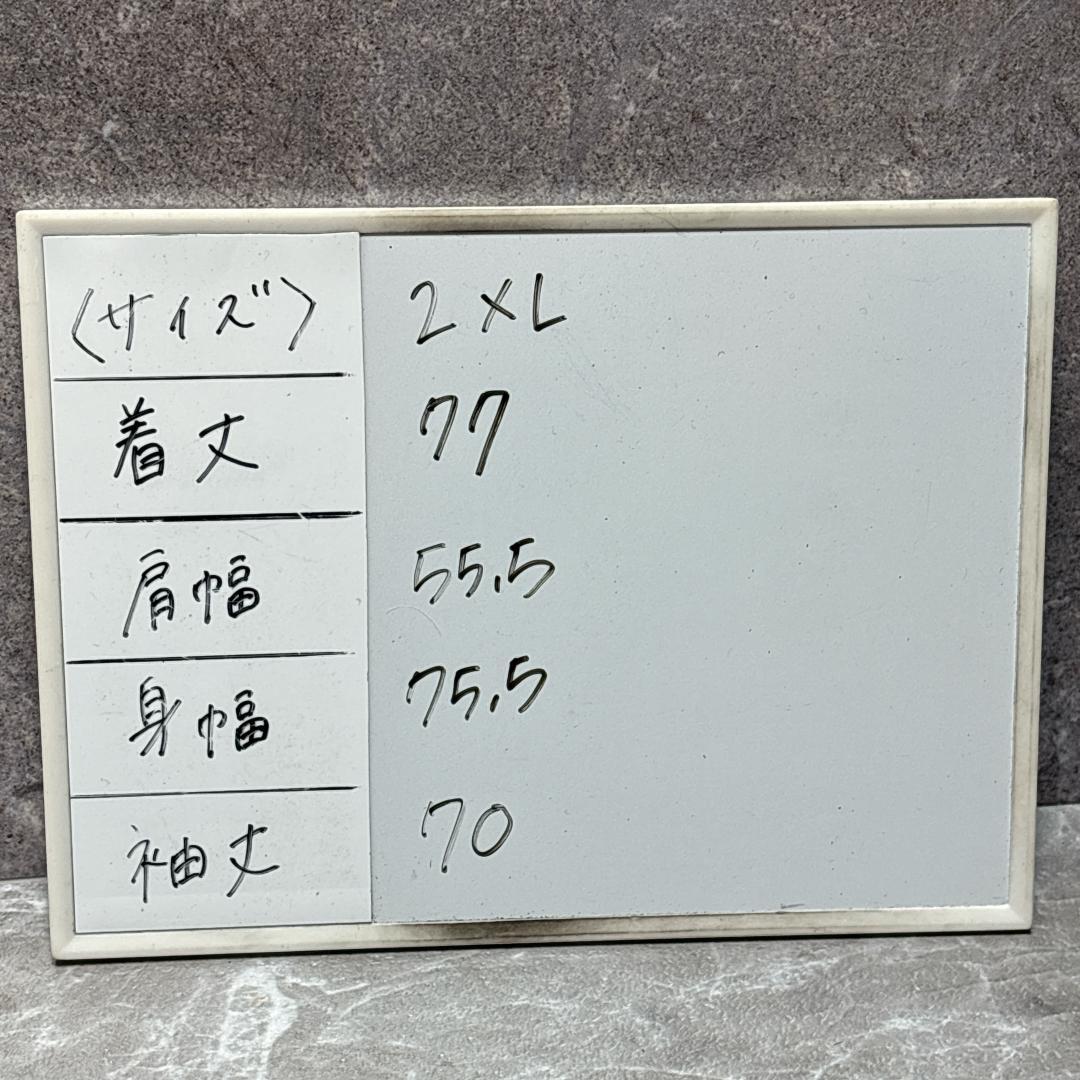 〈サイズ〉 2XL
着丈 77
肩幅 55.5
身幅 75.5
袖丈 70